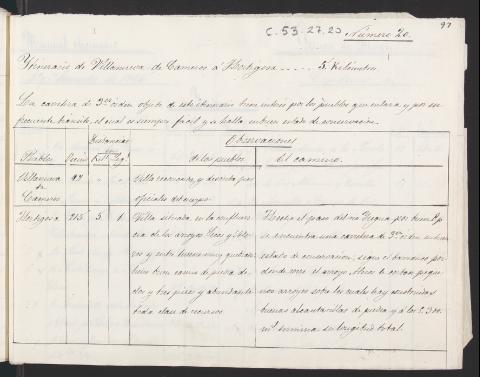 97
C. 53. 27. 20
Número 20.
Itinerario de Villanueva de Cameros á Hortigosa ..... 5 Kilómetros
La carretera de 3er orden objeto de este itinerario tiene interés por los pueblos que enlaza y por su
frecuente tránsito, el cual es siempre facil y se halla en buen estado de conservacion.
Distancias
Observaciones
Pueblos
de los pueblos.
del camino.
Villanueva
de
Cameros
97
" "
Villa reconocida y descrita por
oficiales del cuerpo.
Hortigosa
215
5
1
Villa situada en la confluen-
cia de los arroyos
y entre
buen casas de piedra de
dos y tres pisos y abundante
toda clase de recursos
Hecho el paso del rio Iregua por buen
se encuentra una carretera de 3er orden en buen
estado de conservacion, sigue el barranco por
donde corre el arroyo
arroyos sobre los cuales hay construidas
buenas alcantarillas de piedra y á los 5.300
ms termina su longitud total.